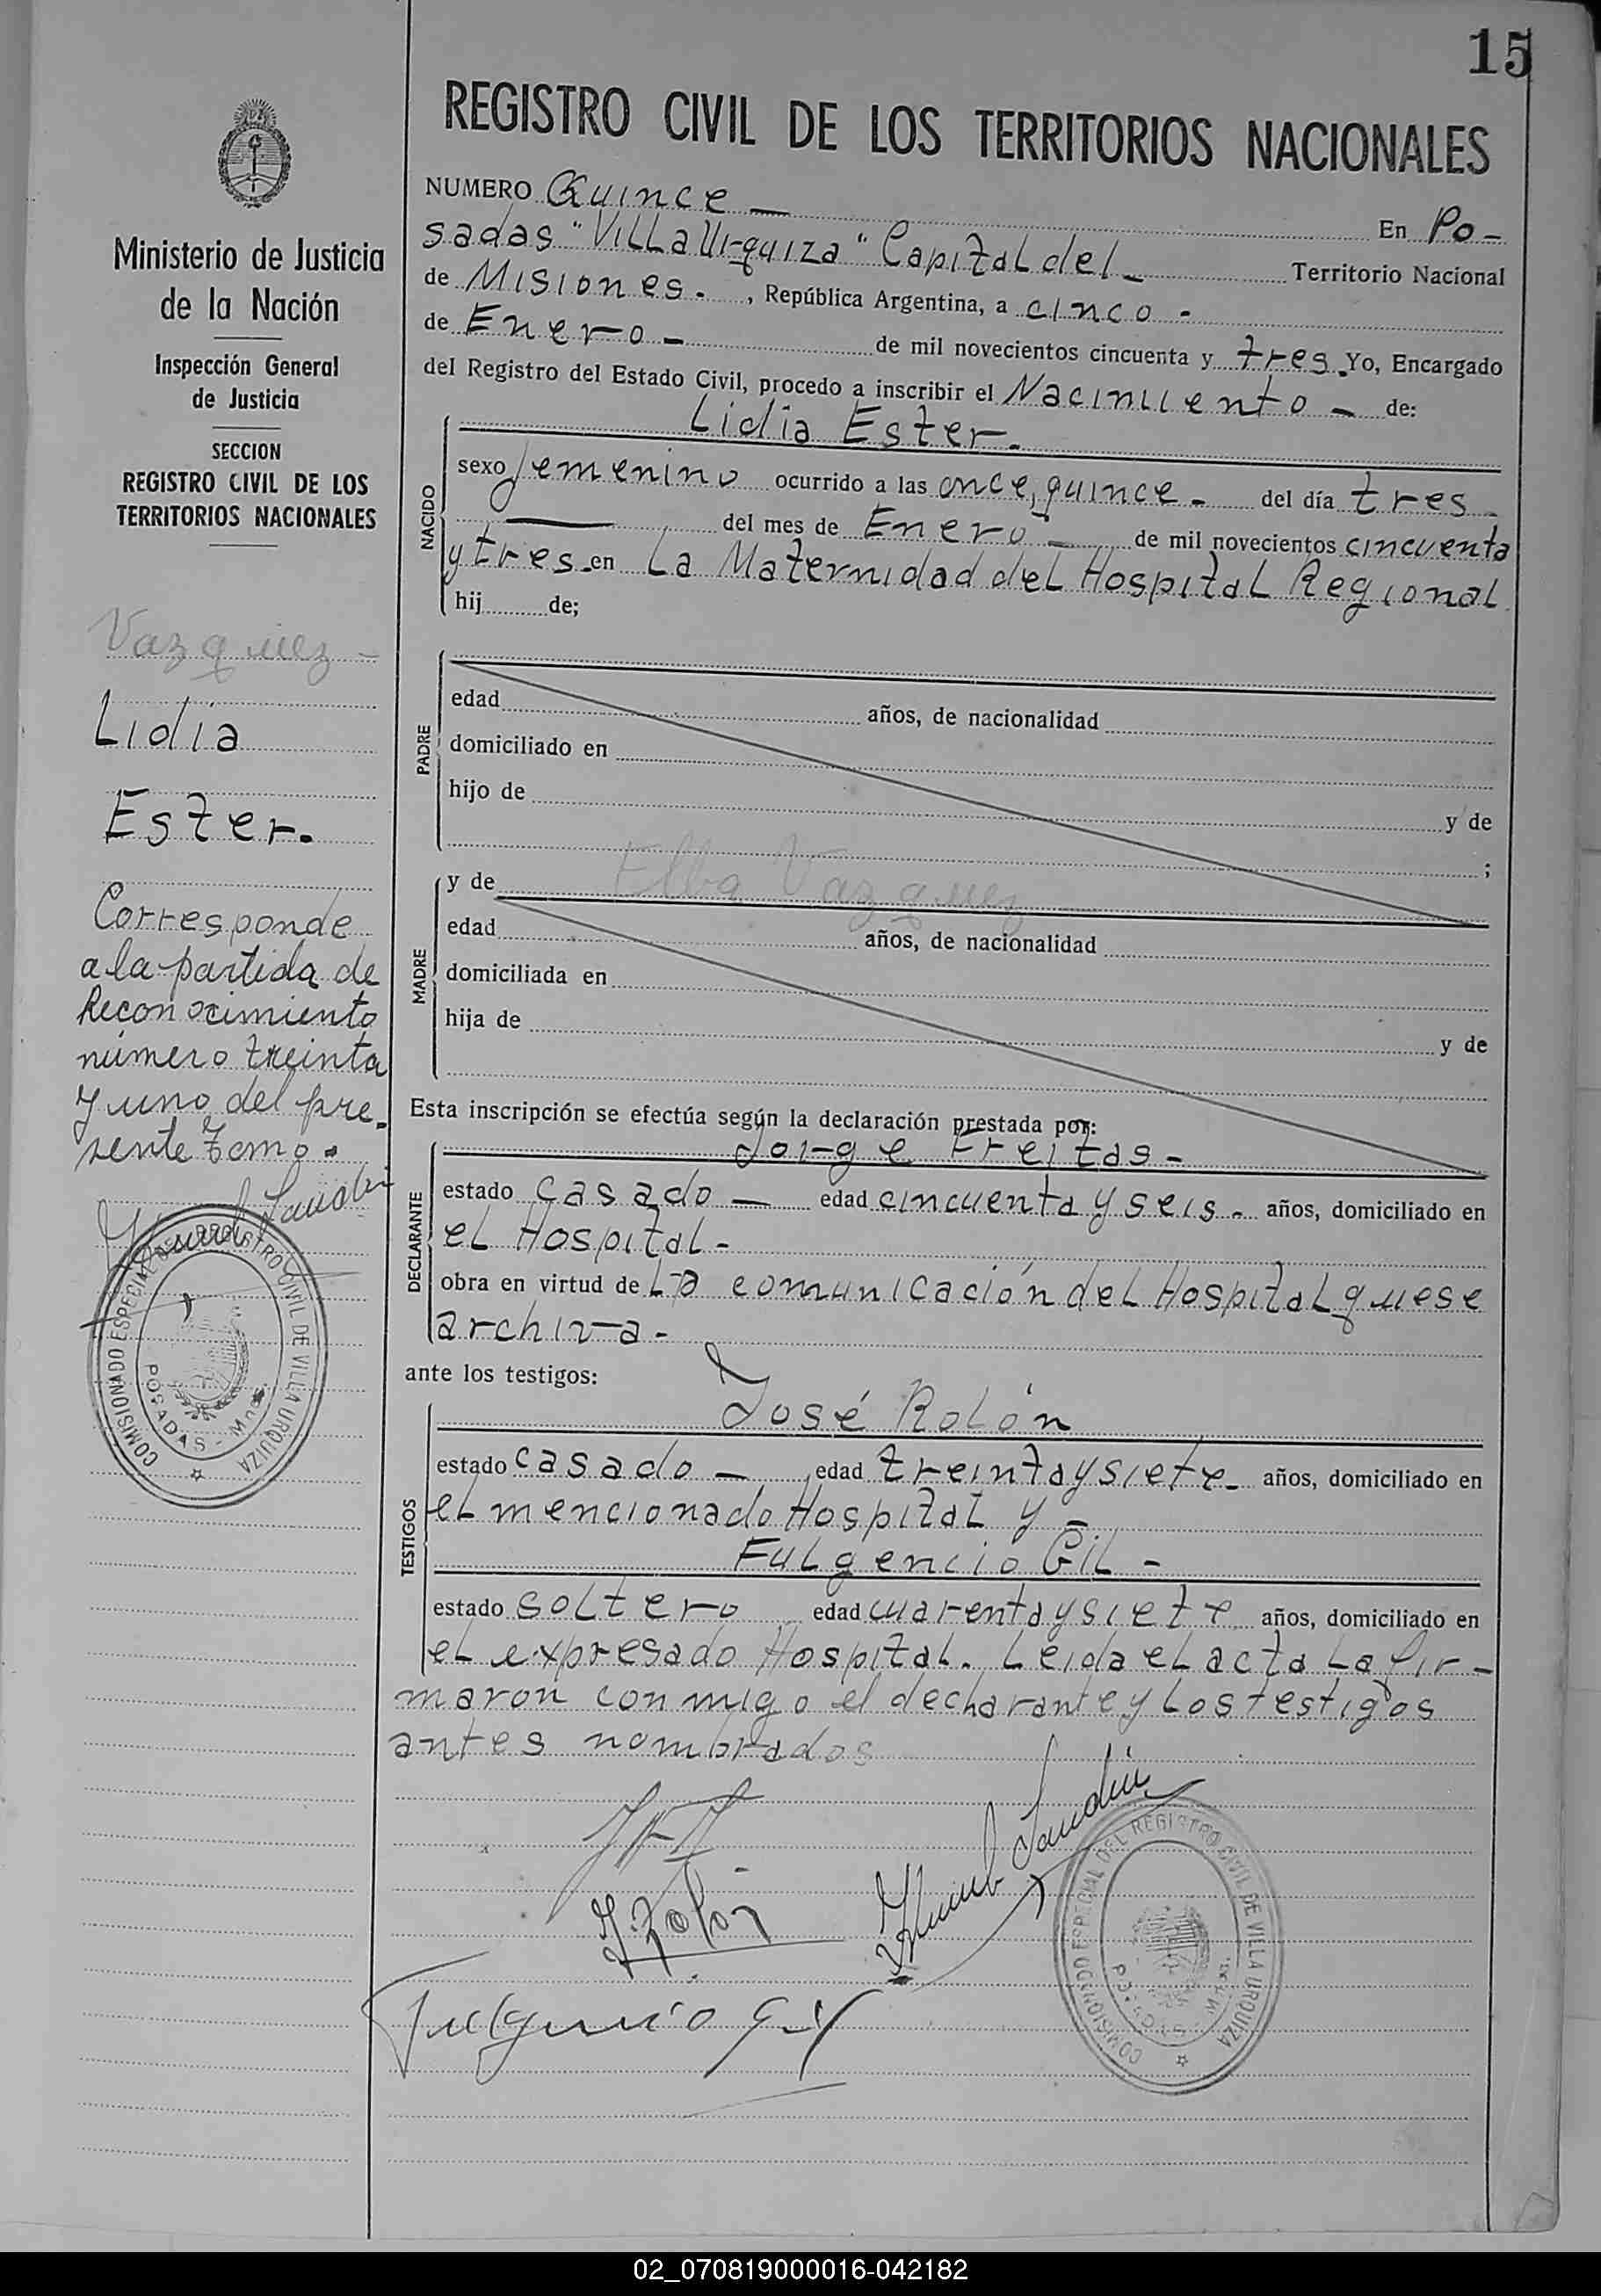 15
REGISTRO CIVIL DE LOS TERRITORIOS NACIONALES
Ministerio de Justicia
de la Nación
Inspección General
de Justicia
SECCION
REGISTRO CIVIL DE LOS
TERRITORIOS NACIONALES
Vazquez -
Lidia
Ester.
Corresponde
a la partida de
Reconocimiento
número treinta
y uno del pre-
sente tomo.
COMISIONADO ESPECIAL DEL REGISTRO CIVIL DE VILLA URQUIZA
POSADAS - Mnes.
NUMERO Quince - En Po-
sadas "Villa Urquiza" Capital del - Territorio Nacional
de Misiones. , República Argentina, a cinco -
de Enero - de mil novecientos cincuenta y tres. Yo, Encargado
del Registro del Estado Civil, procedo a inscribir el Nacimiento - de:
Lidia Ester.
NACIDO
sexo femenino ocurrido a las once, quince - del día tres -
del mes de Enero - de mil novecientos cincuenta
y tres. en La Maternidad del Hospital Regional
hij de;
PADRE
edad años, de nacionalidad
domiciliado en
hijo de y de
;
MADRE
y de Elba Vazquez
edad años, de nacionalidad
domiciliada en
hija de y de
Esta inscripción se efectúa según la declaración prestada por:
DECLARANTE
Jorge Freitas -
estado casado - edad cincuenta y seis - años, domiciliado en
el Hospital -
obra en virtud de La comunicación del Hospital que se
archiva -
ante los testigos:
TESTIGOS
José Rolón
estado casado - edad treinta y siete - años, domiciliado en
el mencionado Hospital y -
Fulgencio Gil -
estado soltero edad cuarenta y siete años, domiciliado en
el expresado Hospital. Leida el acta la fir-
maron conmigo el decharante y los testigos
antes nombrados
J. Rolón
Fulgencio Gil
COMISIONADO ESPECIAL DEL REGISTRO CIVIL DE VILLA URQUIZA
POSADAS - Mnes.
02_070819000016-042182